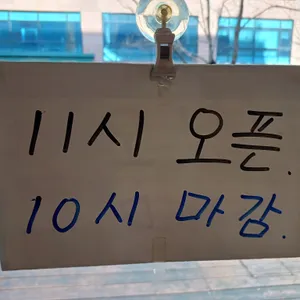 11시 오픈.
10시 마감.